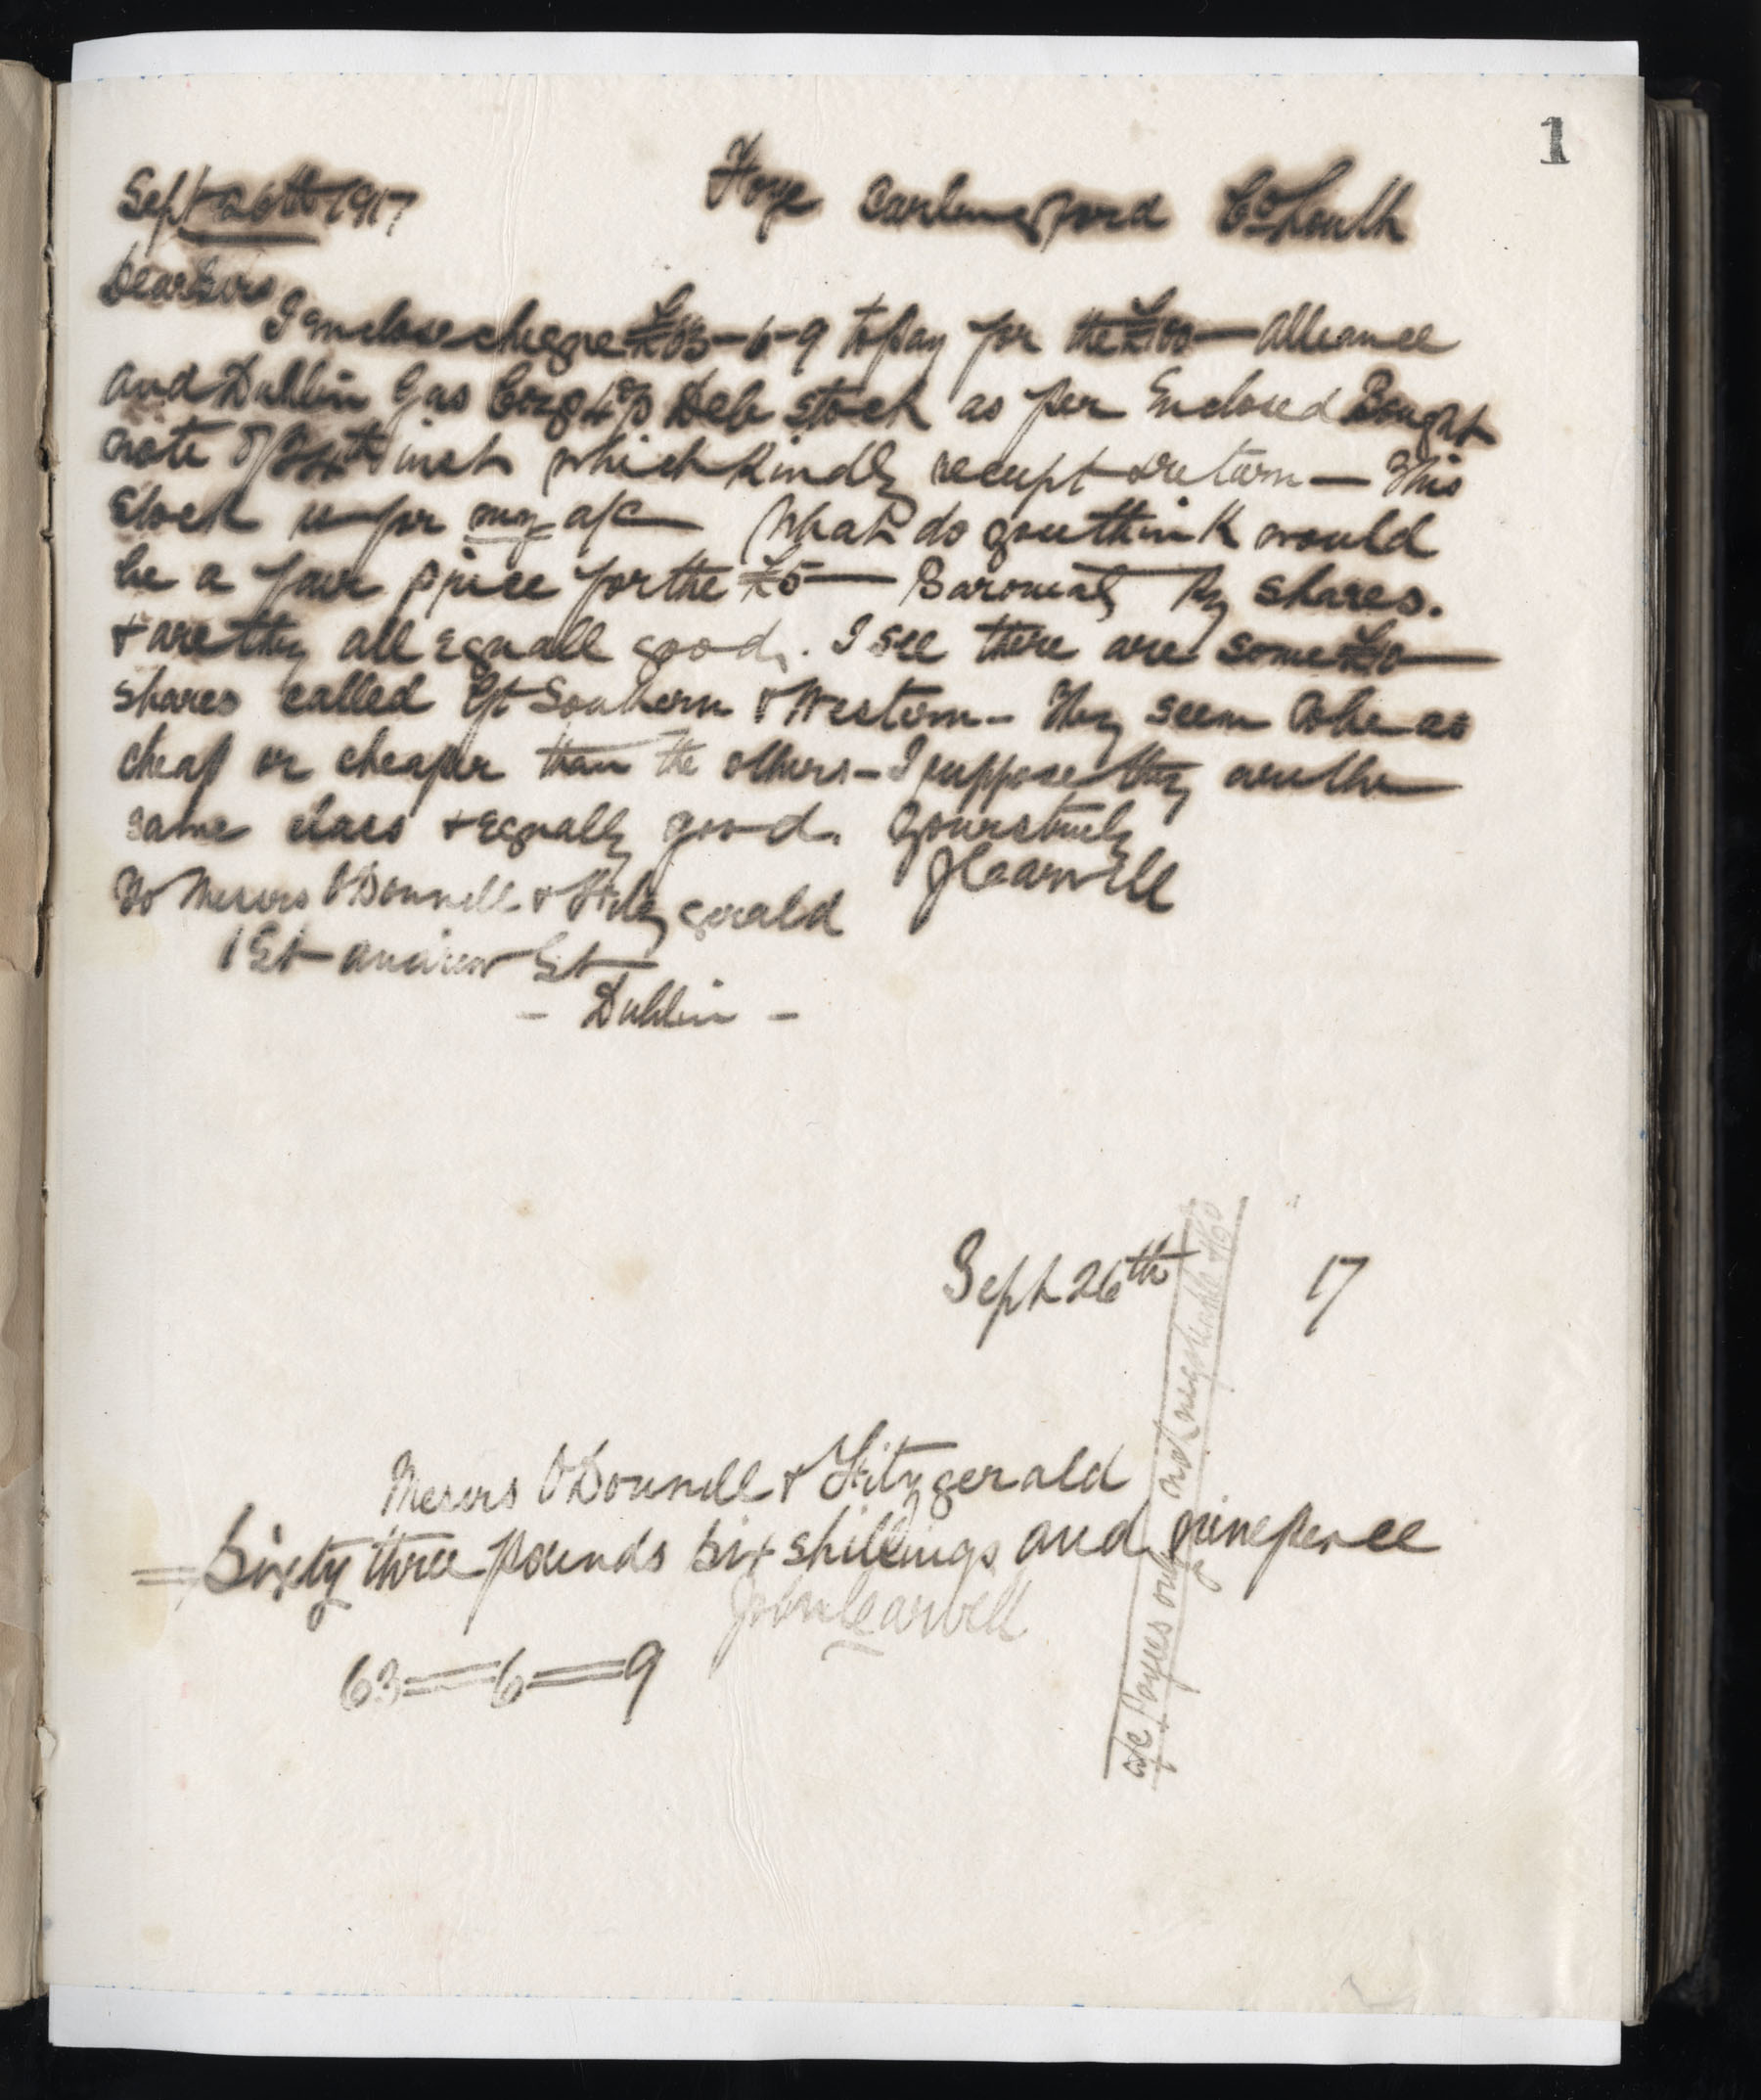 1
Sept 26th 1917 Foye Carlingford Co Louth
Dear Sirs
I enclose cheque £63-6-9 to pay for the £100 — Alliance
and Dublin Gas Corp 4% Deb stock as per Enclosed Bought
note of 24th inst which kindly receipt & return — This
stock is for my a/c — What do you think would
be a fair price for the £5 — Baronial Ry shares.
& are they all equall good. I see there are some £10 —
shares called Gt Southern & Western - They seem to be as
cheap or cheaper than the others - I suppose they are the
same class & equally good. Yours truly
JCarvill
To Messrs O'Donnell & Fitzgerald
1 St Andrew St
- Dublin -
Sept 26th 17
Messrs O'Donnell & Fitzgerald
Sixty three pounds six shillings and ninepence
John Carvill
63=6=9
a/c Payees only not negotiable